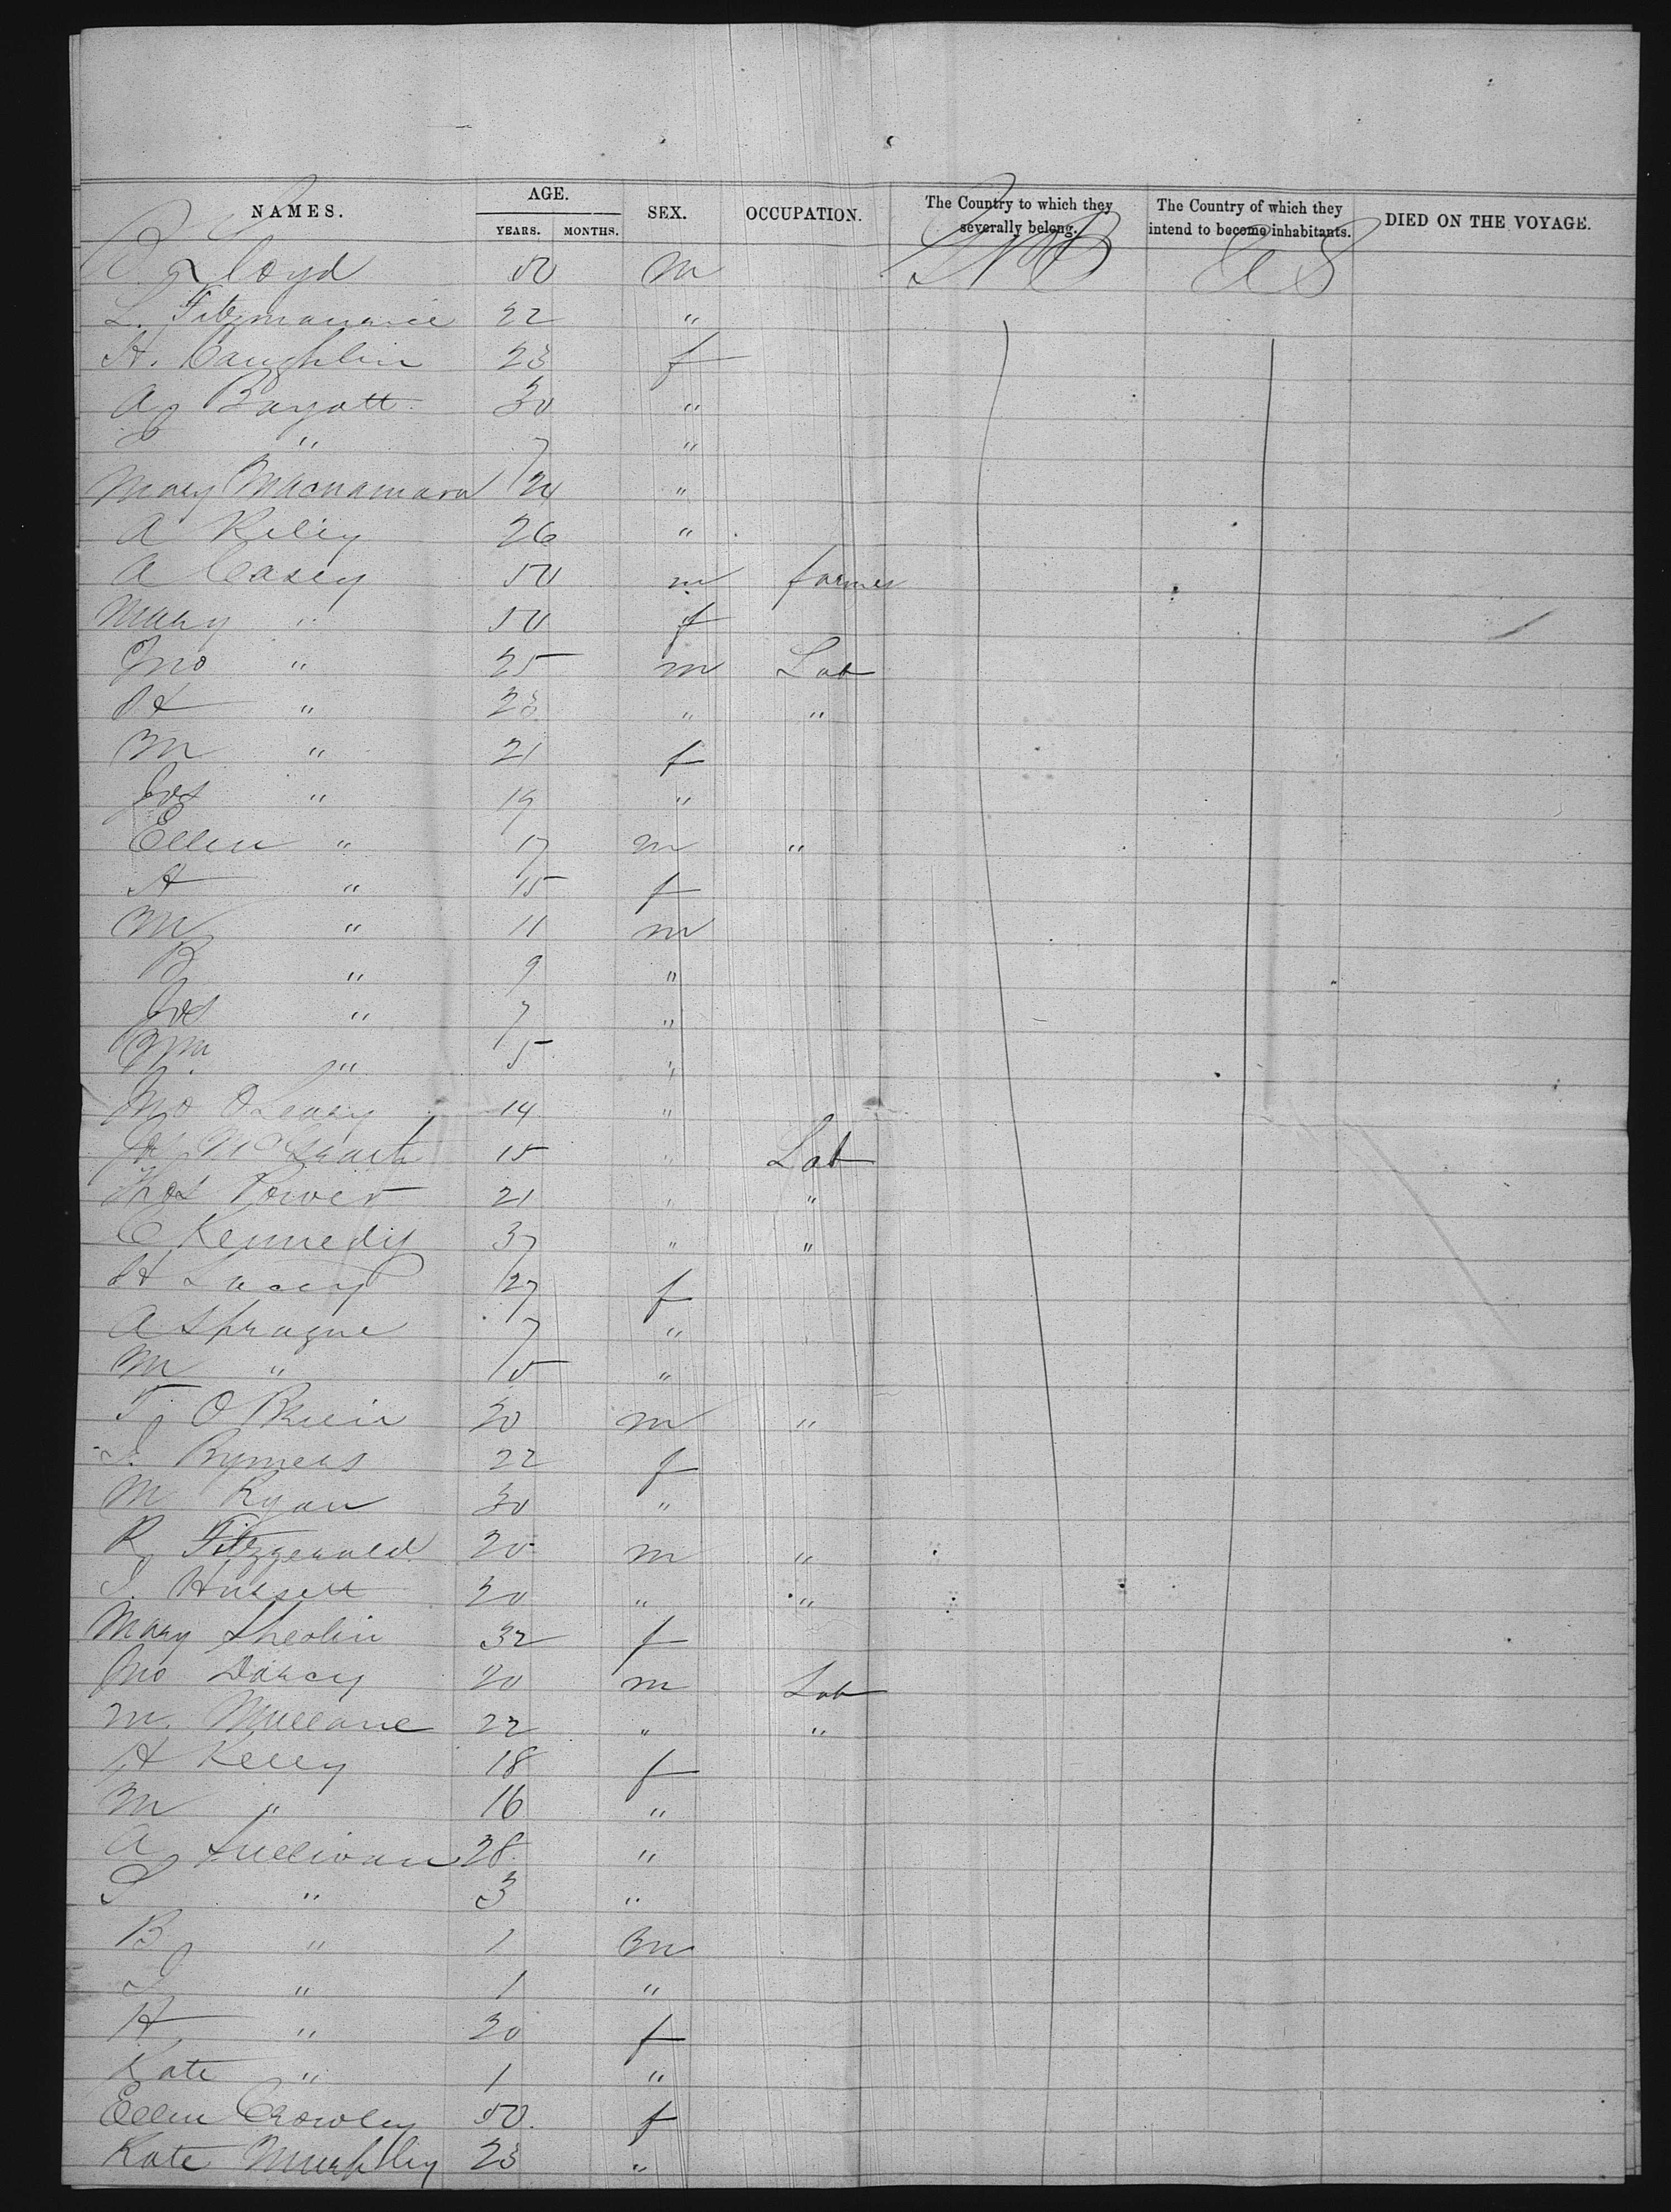 NAMES. AGE. YEARS. MONTHS. SEX. OCCUPATION. The Country to which they severally belong. The Country of which they intend to become inhabitants. DIED ON THE VOYAGE.
Lloyd 50 m U S
L. Fitzmaurice 22 "
H. Coughlin 23 f
A Bayott 30 "
" 7 "
Mary Macnamara 24 "
A Riley 26 "
A Casey 50 m farmer
Mary " 50 f
Jno " 25 m Lab
H " 23 " "
M " 21 f
Jos " 19 "
Ellen " 17 m "
H " 15 f
M " 11 m
B " 9 "
Jos " 7 "
Wm " 5 "
Jno O Leary 14 "
15 " Lab
Thos Power 21 " "
C Kennedy 37 " "
H Lacey 27 f
A Sprague 7 "
M " 5 "
T. O Brien 20 m "
Rymers 22 f
M Ryan 30 "
R Fitzgerald 20 m "
20 " "
Mary Sheolin 32 f
Jno Darcy 20 m Lab
M. Mullane 22 " "
H Kelly 18 f
M " 16 "
A Sullivan 28 "
S " 3 "
B " 1 m
J " 1 "
H " 20 f
Kate " 1 "
Ellen Crowley 50 f
Kate Murphy 23 "